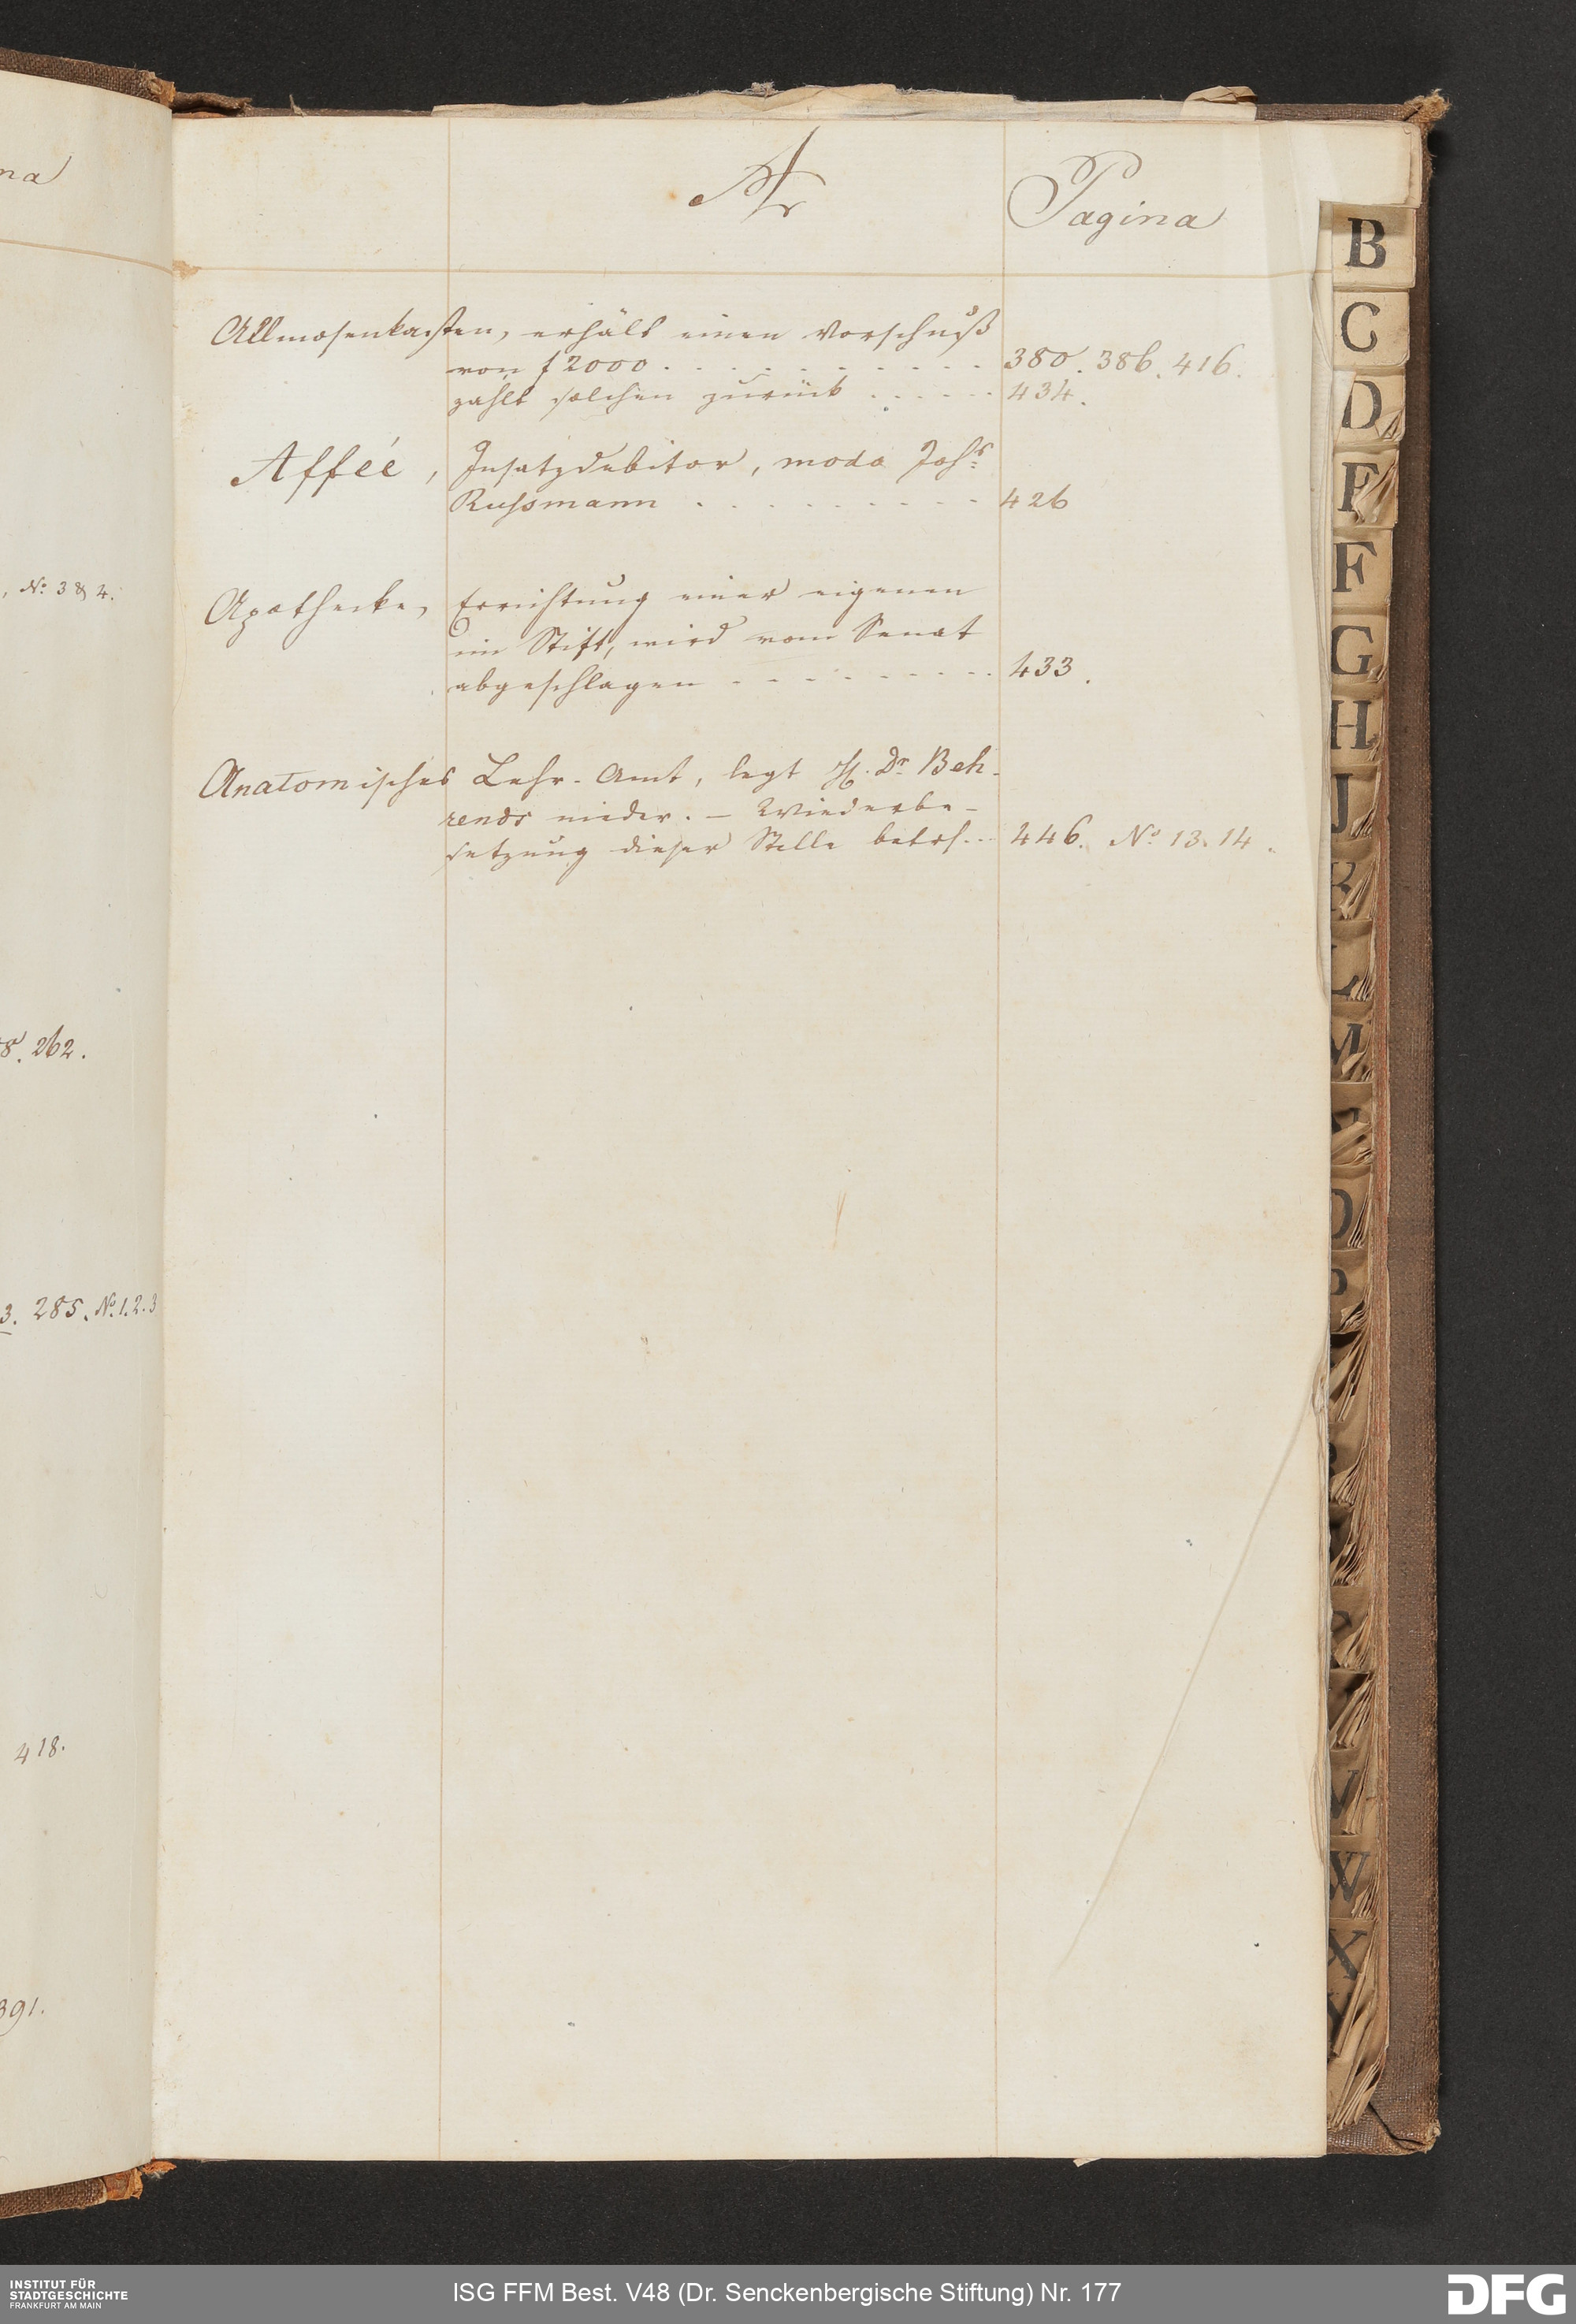 na
, No. 3 & 4.
8. 262.
3. 285. No. 1. 2. 3
418.
391.
A
Pagina
Allmosenkasten, erhält einen Vorschuß
von f 2000 . . . . . . . . . . 380. 386. 416.
zahlt solchen zurück . . . . . . 434.
Affeé, Insatzdebitor, modo Johs.
Russmann . . . . . . . . . 426
Apothecke, Errichtung einer eigenen
im Stift, wird vom Senat
abgeschlagen - - - - - - - - - 433.
Anatomisches Lehr-Amt, legt H. Dr. Beh-
rends nieder. — Wiederbe-
setzung dieser Stelle betrf. - - 446. No. 13. 14.
B
C
D
F
G
H
J
L
M
O
P
V
W
X
Y
INSTITUT FÜR
STADTGESCHICHTE
FRANKFURT AM MAIN
ISG FFM Best. V48 (Dr. Senckenbergische Stiftung) Nr. 177
DFG